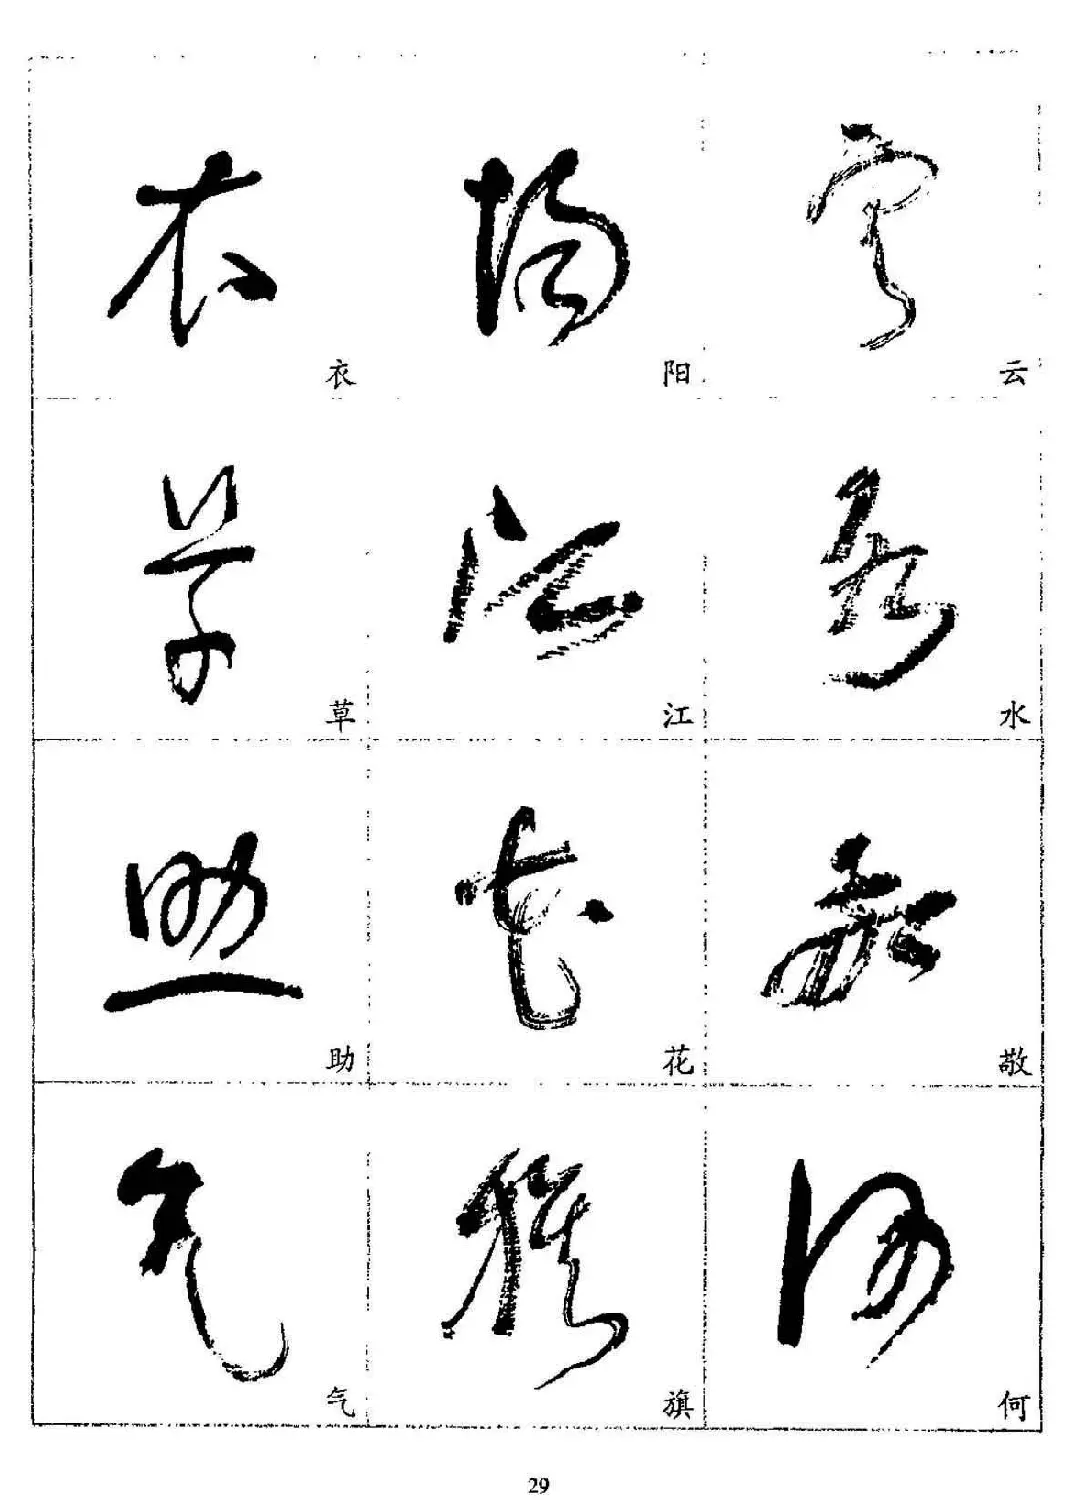 衣 阳 云
草 江 水
助 花 敬
气 旗 何
29